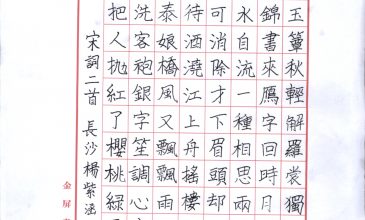 玉簟秋輕解羅裳獨
錦書來鴈字回時月
水自流一種相思兩
可消除才下眉頭却
待酒澆江上舟搖樓
泰娘橋風又飄飄雨
洗客袍銀字笙調心
把人拋紅了櫻桃綠
宋詞二首 長沙楊紫涵
金屏